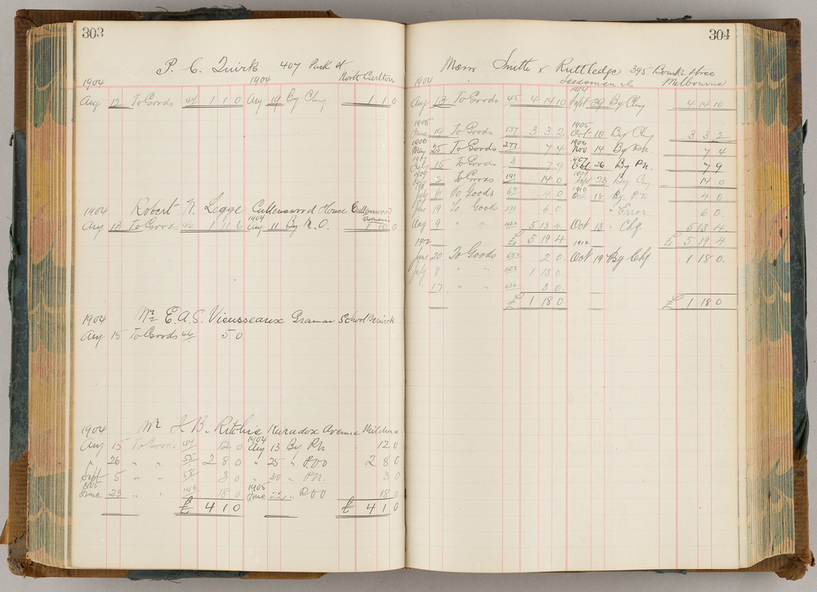 303
P. C. Quirk 407 Park St
North Carlton
1904 1904
Aug 12 To Goods 44 1 1 0 Aug 19 By Chq 1 1 0
1904 Robert N. Legge Cullenswood House Cullenswood
Aug 13 To Goods 1 11 6 1904 Aug 11 By N.O. 1 10 0
1904 Mr E. A. S. Vieusseaux Gramar School
Aug 15 To Goods 46 5 0
1904 Mr H B. Ritchie Avenue
Aug 15 To Goods 12 0 1904 Aug 13 By P.N. 12 0
" 26 " " 2 8 0 " 25 " P.O.O 2 8 0
Sept 5 " " 3 0 " 30 " P.N. 3 0
1905 June 23 " " 18 0 1905 June 22 " P.O.O 18 0
£ 4 1 0 £ 4 1 0
304
Messrs Smith & Ruttledge 395 Bourke Street
Melbourne
1904 1904
Aug 13 To Goods 45 4 14 10 Sept 29 By Chq 4 14 10
1905 June 19 To Goods 137 3 3 2 1905 Oct 10 By Chq 3 3 2
May 25 To Goods 277 7 4 1906 Nov 14 By P.N. 7 4
15 To Goods 7 9 26 By P.N. 7 9
To Goods 14 0 By Chq 14 0
To Goods 4 0 1910 By P.N. 4 0
19 To Goods 6 0 " Error 6 0
Aug 9 " " 5 13 4 Oct 13 " Chq 5 13 4
£ 5 19 4 £ 5 19 4
1912 1912
June 20 To Goods 2 0 Oct 19 By Chq 1 18 0
July 8 " " 1 13 0
17 " " 3 0
£ 1 18 0 £ 1 18 0